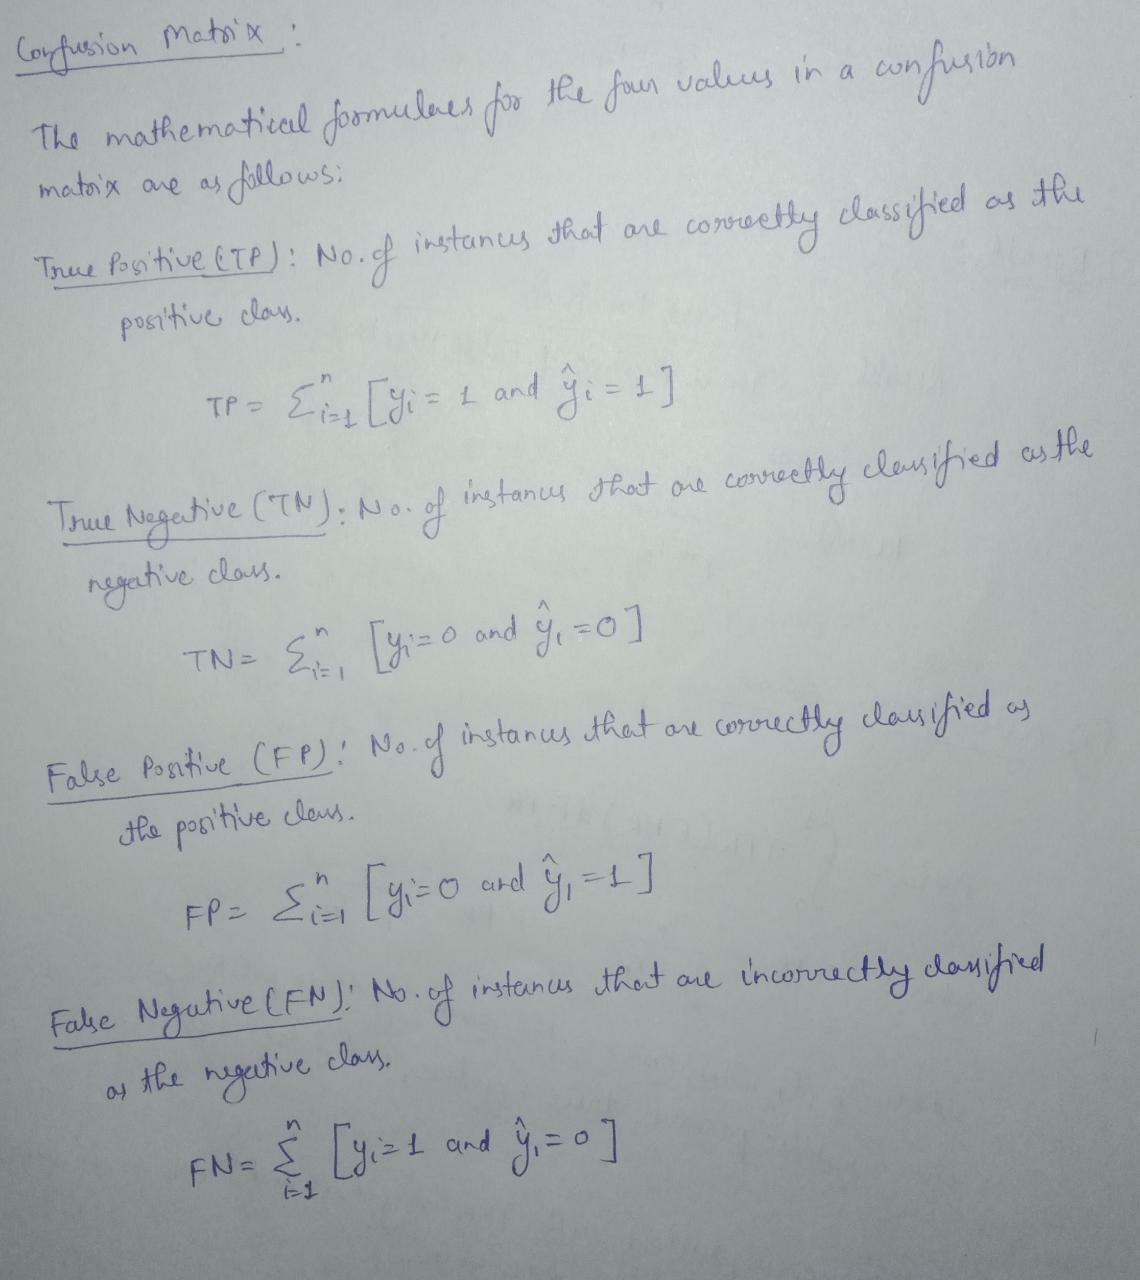 Confusion Matrix :
The mathematical formulaes for the four values in a confusion
matrix are as follows:
True Positive (TP) : No. of instances that are correctly classified as the
positive class.
TP = Σⁿᵢ₌₁ [yᵢ = 1 and ŷᵢ = 1]
True Negative (TN) : No. of instances that are correctly classified as the
negative class.
TN = Σⁿᵢ₌₁ [yᵢ = 0 and ŷᵢ = 0]
False Positive (FP) : No. of instances that are correctly classified as
the positive class.
FP = Σⁿᵢ₌₁ [yᵢ = 0 and ŷᵢ = 1]
False Negative (FN) : No. of instances that are incorrectly classified
as the negative class.
FN = Σⁿᵢ₌₁ [yᵢ = 1 and ŷᵢ = 0]